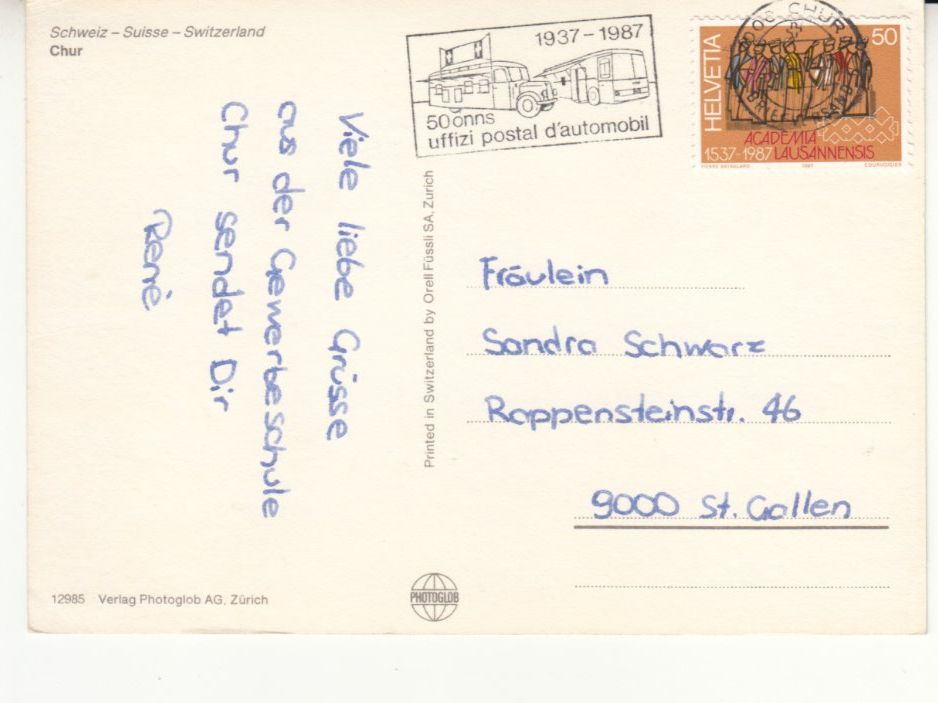 Schweiz – Suisse – Switzerland
Chur
1937 – 1987
50 onns
uffizi postal d'automobil
CHUR
HELVETIA
50
ACADEMIA
1537-1987 LAUSANNENSIS
Viele liebe Grüsse
aus der Gewerbeschule
Chur sendet Dir
René
Printed in Switzerland by Orell Füssli SA, Zurich
Fräulein
Sandra Schwarz
Rappensteinstr. 46
9000 St. Gallen
12985 Verlag Photoglob AG, Zürich
PHOTOGLOB